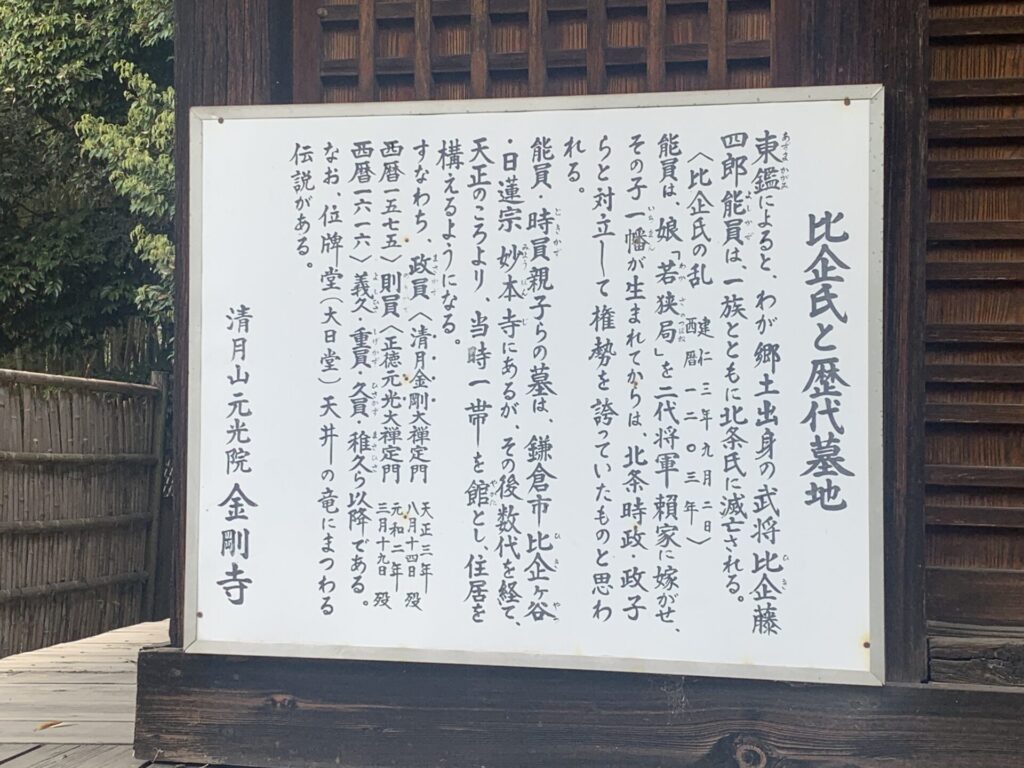 比企氏と歴代墓地
東鑑によると、わが郷土出身の武将比企藤
四郎能員は、一族とともに北条氏に滅亡される。
〈比企氏の乱 建仁三年九月二日 西暦一二〇三年〉
能員は、娘「若狭局」を二代将軍頼家に嫁がせ、
その子一幡が生まれてからは、北条時政・政子
らと対立して権勢を誇っていたものと思わ
れる。
能員・時員親子らの墓は、鎌倉市比企ヶ谷
・日蓮宗妙本寺にあるが、その後数代を経て、
天正のころより、当時一帯を館とし、住居を
構えるようになる。
すなわち、政員〈清月金剛大禅定門 天正三年 八月十四日 歿
西暦一五七五〉則員〈正徳元光大禅定門 元和二年 三月十九日 歿
西暦一六一六〉義久・重員・久員・稚久ら以降である。
なお、位牌堂(大日堂)天井の竜にまつわる
伝説がある。
清月山元光院 金剛寺